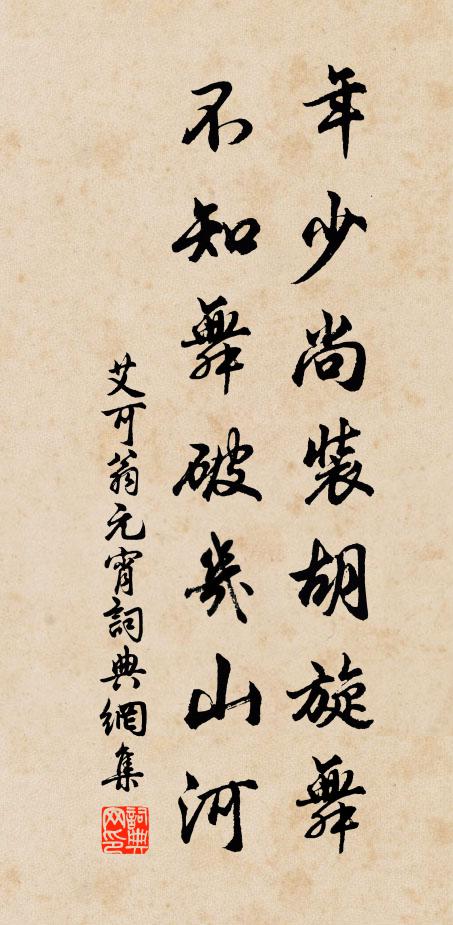 年少尚裝胡旋舞
不知舞破幾山河
艾可翁元宵詞典網集
詞典网印